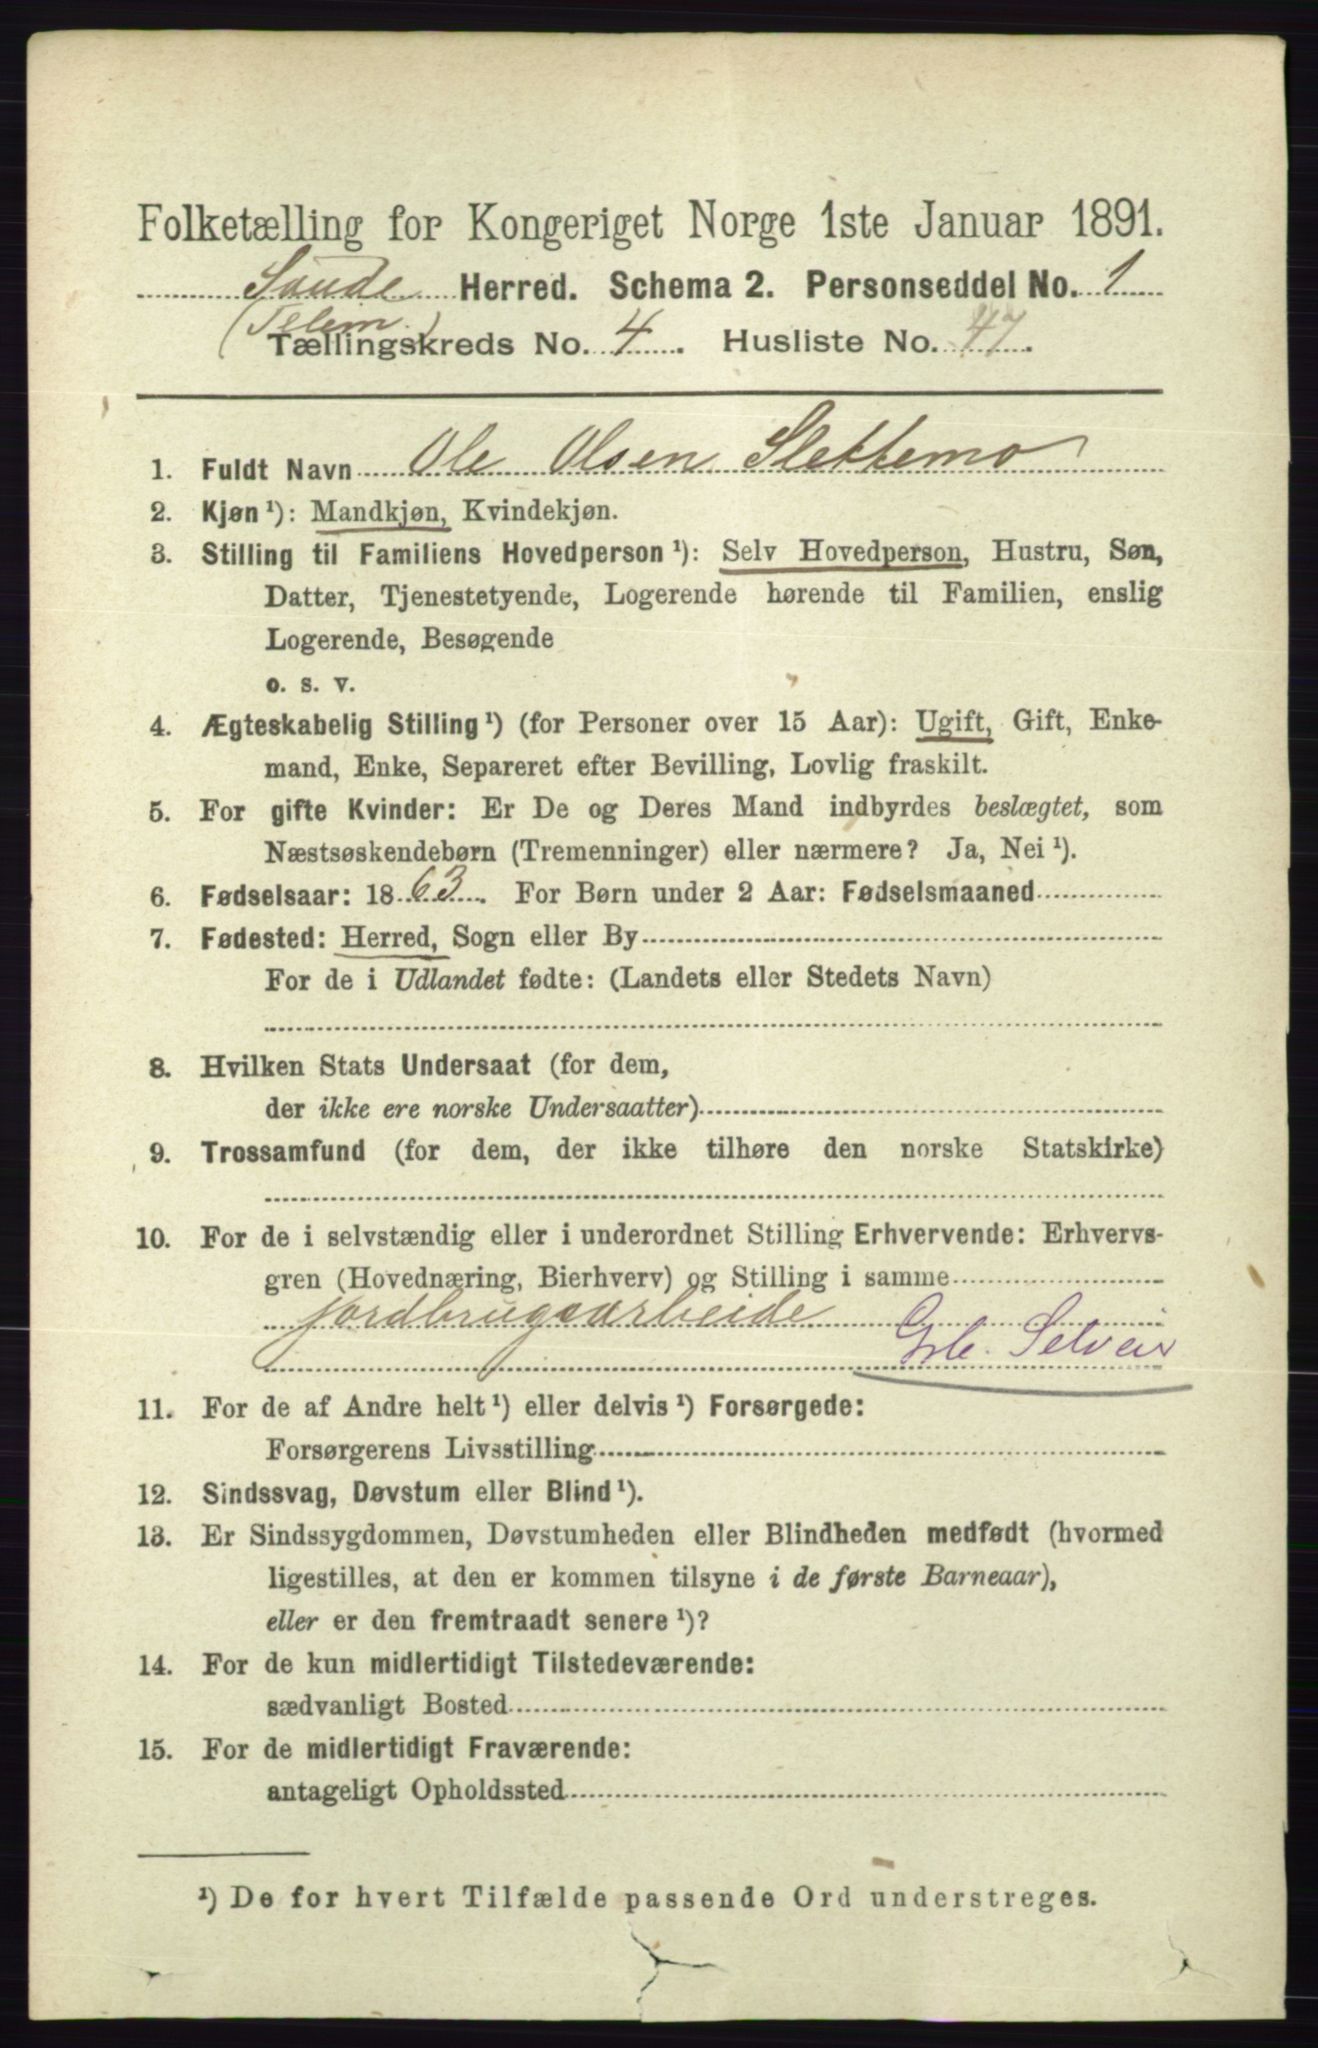 Folketælling for Kongeriget Norge 1ste Januar 1891.
Saude Herred. Schema 2. Personseddel No. 1
(Telem.)
Tællingskreds No. 4. Husliste No. 47.
1. Fuldt Navn Ole Olsen Slettemo
2. Kjøn ¹): Mandkjøn, Kvindekjøn.
3. Stilling til Familiens Hovedperson ¹): Selv Hovedperson, Hustru, Søn,
Datter, Tjenestetyende, Logerende hørende til Familien, enslig
Logerende, Besøgende
o. s. v.
4. Ægteskabelig Stilling ¹) (for Personer over 15 Aar): Ugift, Gift, Enke-
mand, Enke, Separeret efter Bevilling, Lovlig fraskilt.
5. For gifte Kvinder: Er De og Deres Mand indbyrdes beslægtet, som
Næstsøskendebørn (Tremenninger) eller nærmere? Ja, Nei ¹).
6. Fødselsaar: 1863. For Børn under 2 Aar: Fødselsmaaned
7. Fødested: Herred, Sogn eller By
For de i Udlandet fødte: (Landets eller Stedets Navn)
8. Hvilken Stats Undersaat (for dem,
der ikke ere norske Undersaatter)
9. Trossamfund (for dem, der ikke tilhøre den norske Statskirke)
10. For de i selvstændig eller i underordnet Stilling Erhvervende: Erhvervs-
gren (Hovednæring, Bierhverv) og Stilling i samme
jordbrugsarbeide
Grbr. Selveier
11. For de af Andre helt ¹) eller delvis ¹) Forsørgede:
Forsørgerens Livsstilling
12. Sindssvag, Døvstum eller Blind ¹).
13. Er Sindssygdommen, Døvstumheden eller Blindheden medfødt (hvormed
ligestilles, at den er kommen tilsyne i de første Barneaar),
eller er den fremtraadt senere ¹)?
14. For de kun midlertidigt Tilstedeværende:
sædvanligt Bosted
15. For de midlertidigt Fraværende:
antageligt Opholdssted
¹) De for hvert Tilfælde passende Ord understreges.